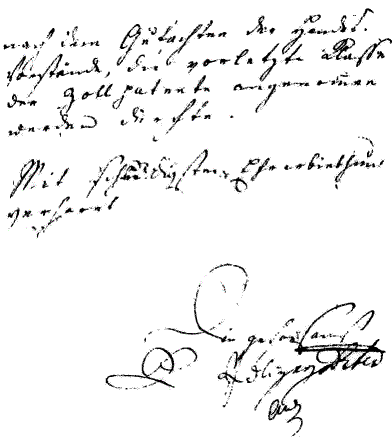 nach dem Gutachten der Handels.
Vorstände, die vorletzte Klasse
der Zollpatente angenommen
werden dürfte.
Mit schuldigster Ehrerbiethung
verharrt